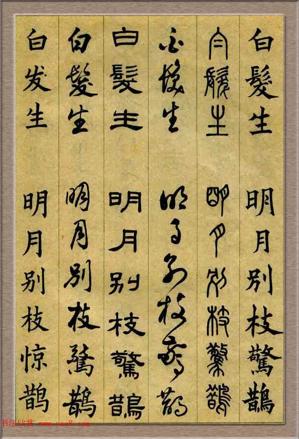 白髮生 明月別枝驚鵲
白髮生 明月別枝驚鵲
白髮生 明月別枝驚鵲
白髮生 明月別枝驚鵲
白髮生 明月別枝驚鵲
白发生 明月别枝惊鹊